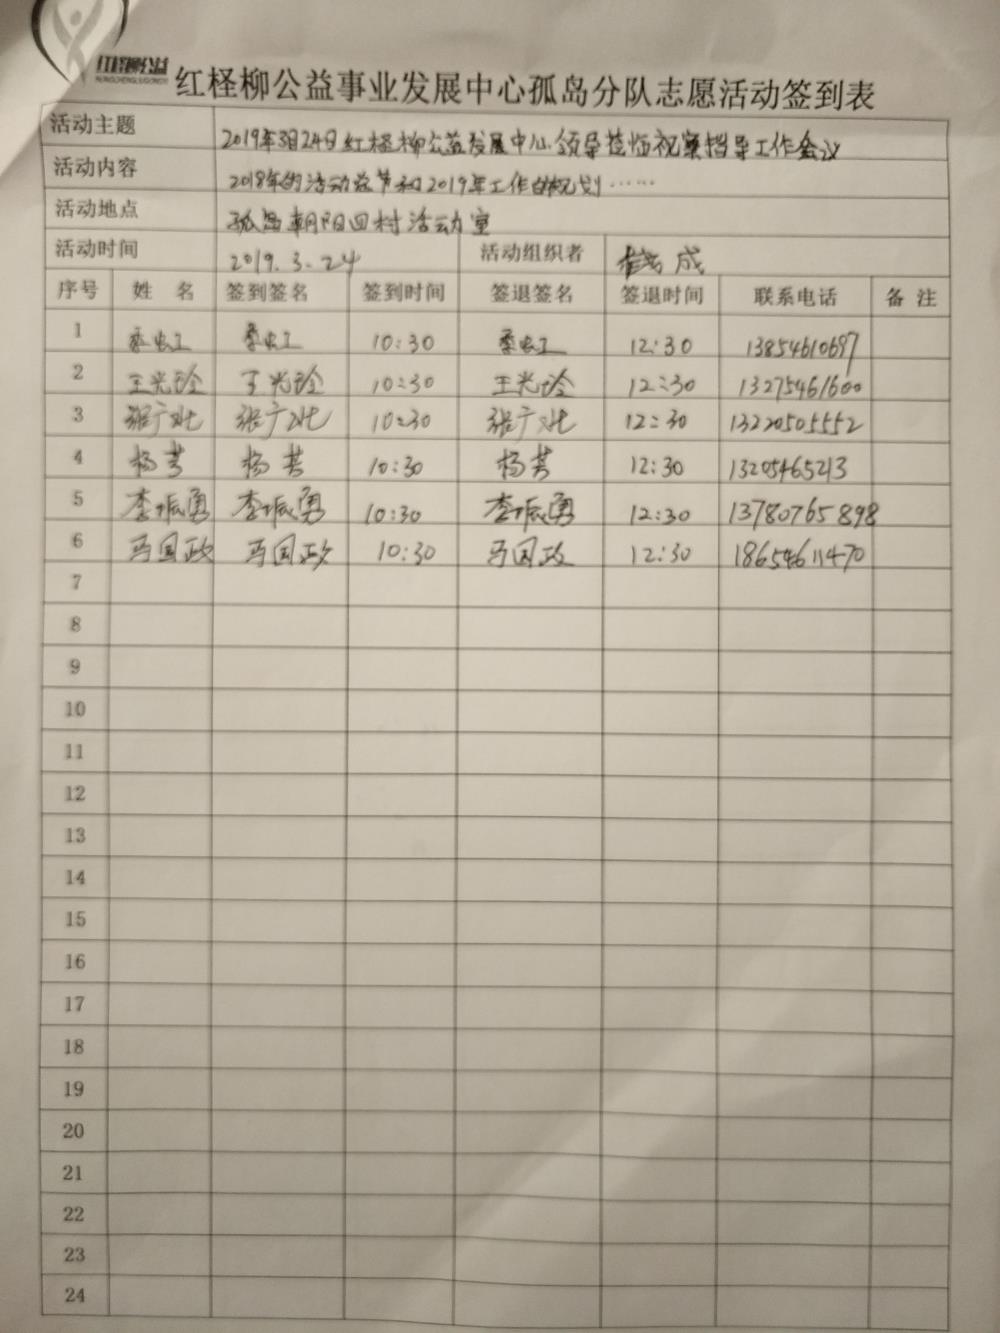 红柽柳公益
HONGCHENGLIUGONGYI
红柽柳公益事业发展中心孤岛分队志愿活动签到表
活动主题 2019年3月24日红柽柳公益发展中心领导莅临视察指导工作会议
活动内容 2018年的活动总节和2019年工作的规划……
活动地点 孤岛朝阳四村活动室
活动时间 2019.3.24 活动组织者 成
序号 姓 名 签到签名 签到时间 签退签名 签退时间 联系电话 备 注
1 10:30 12:30 13854610697
2 王光玲 王光玲 10:30 王光玲 12:30 13275461600
3 张广 张广 10:30 张广 12:30 13220505552
4 杨芳 杨芳 10:30 杨芳 12:30 13205465213
5 李振勇 李振勇 10:30 李振勇 12:30 13780765898
6 马国政 马国政 10:30 马国政 12:30 18654611470
7
8
9
10
11
12
13
14
15
16
17
18
19
20
21
22
23
24